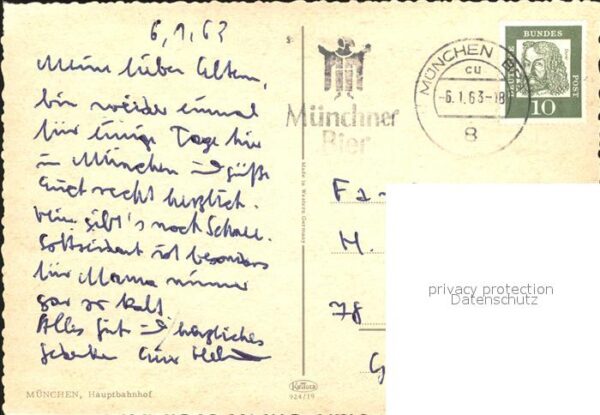 6.1.63
Meine lieben Eltern,
bin wieder einmal
für einige Tage hier
in München und grüße
Euch recht herzlich.
gibt's noch Schnee.
Gottseidank ist besonders
für Mama nimmer
gar so kalt
Alles Gute und herzliches
Gedenken Euer
MÜNCHEN, Hauptbahnhof
Made in Western Germany
Krüger
924/19
Münchner
Bier
MÜNCHEN
cu
-6.1.63-18
8
DEUTSCHE
BUNDES
POST
10
Fa
H.
78
G
privacy protection
Datenschutz